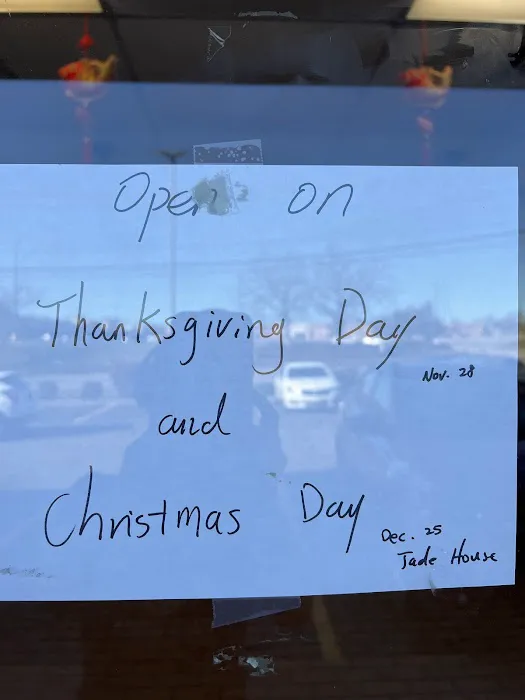 Open on
Thanksgiving Day
Nov. 28
and
Christmas Day
Dec. 25
Jade House